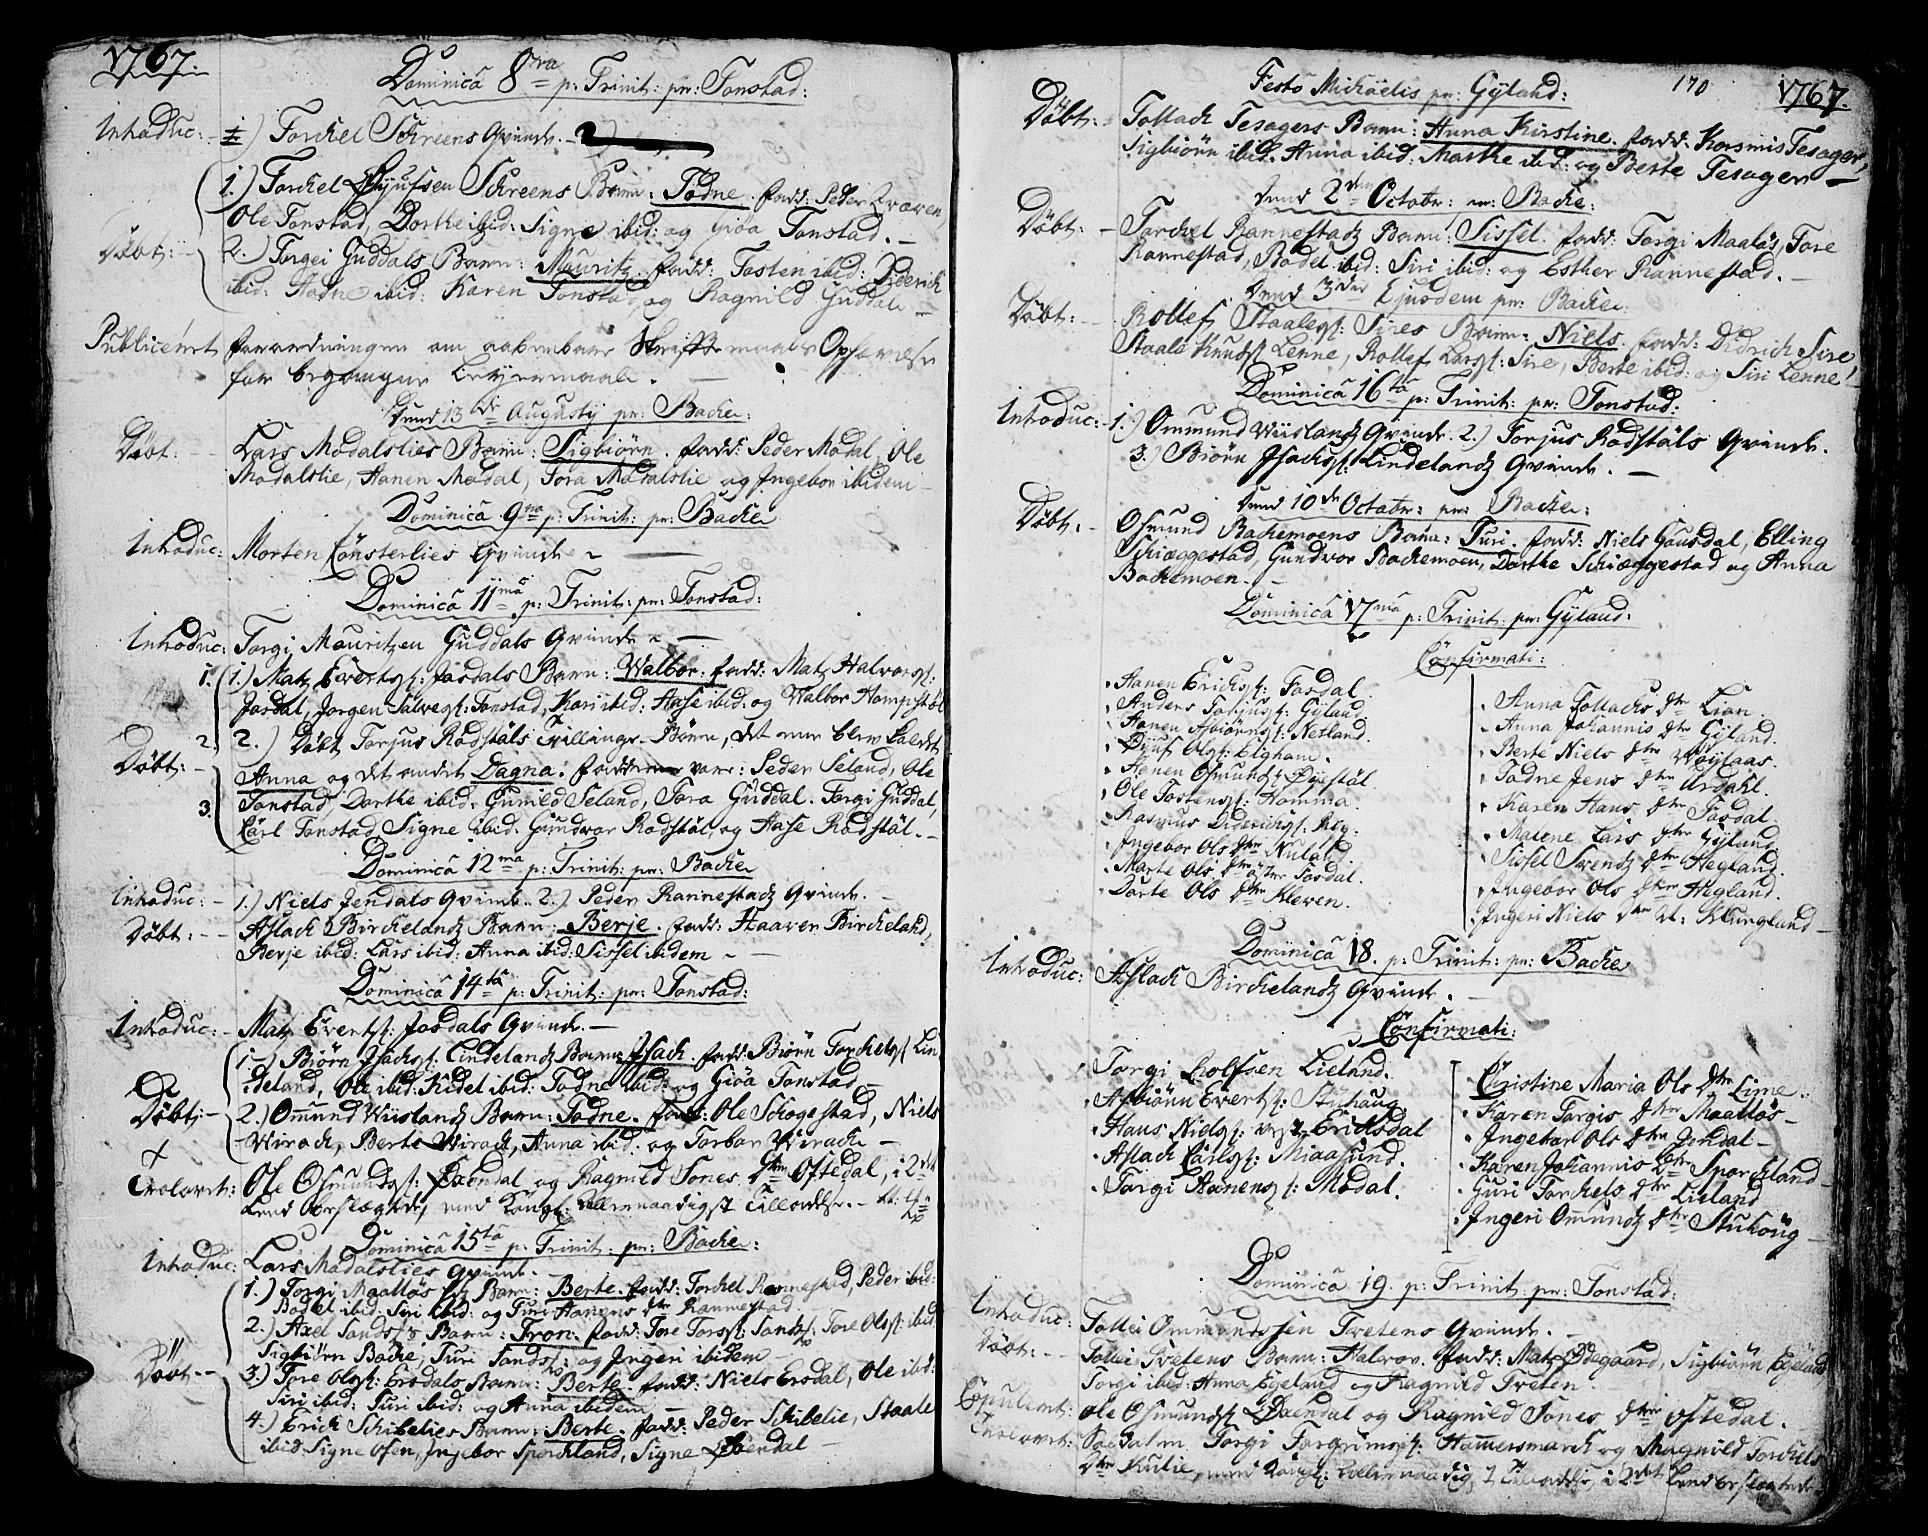 1767.
Dominica 8va p: Trinit: pr: Tonstad:
Introduc: 1) Torchel Schreens Qvinde. 2)
1.) Torchel Schreens Barn: Todne. fadd: Peder Qvæven,
Ole Tonstad, Dorthe ibid: Signe ibid: og Giöa Tonstad.
Döbt: 2.) Torgei Guddals Barn: Mauritz. fadd: Tosten ibid: Diderich
ibid: Aadne ibid: Karen Tonstad, og Ragnild Guddal
Publiceret forordningen om aabenbare Skriftemaals Ophævelse
for begangne Leyermaale.
Dend 13de Augustij pr: Backe:
Döbt: Lars Modalslies Barn: Sigbiörn. fadd: Peder Modal, Ole
Modalslie, Aanen Modal, Tora Modalslie og Ingebor ibidem
Dominica 9na p: Trinit: pr: Backe
Introduc: Morten Lönsterlies Qvinde
Dominica 11ma p: Trinit: pr: Tonstad:
Introduc: Torgi Mauritzen Guddals Qvinde
1. 1.) Matz Evertsf: Josdals Barn: Walbor. fadd: Matz Halvorsf:
Josdal, Jorgen Salvesf: Tonstad, Kari ibid. Aase ibid: og Walbor Hompstöl
2. 2.) Döbt Torjus Rodstöls Tvillinge-Börn, det eene blev kaldet
Döbt: Anna og det andet Dagna. fadderne vare: Peder Seland, Ole
3. Tonstad, Dorthe ibid. Gunild Seland, Tora Guddal. Torgi Guddal,
Carl Tonstad, Signe ibid. Gundvor Rodstöl, og Aase Rodstöl.
Dominica 12ma p: Trinit: pr: Backe
Introduc: 1.) Niels Jendals Qvinde. 2.) Peder Rannestadz Qvinde.
Döbt: Aslach Birchelandz Barn: Berje. fadd: Haaver Bircheland,
Berje ibid: Lars ibid: Anna ibid: Sissel ibidem
Dominica 14ta p: Trinit: pr: Tonstad:
Introduc: Matz Evertsf: Josdals Qvinde.
1.) Biörn Isachsf. Lindelandz Barn: Isach. fadd: Biörn Torchelsf Lin-
deland, Ole ibid: Kidel ibid: Todne ibid: og Giöa Tonstad
Döbt: 2.) Omund Wiislandz Barn: Todne. fadd: Ole Schogestad, Niels
Wirach, Berte Wirach, Anna ibid. og Torbor Wirach
Trolovet: Ole Osmundsf: Öxendal og Ragnild Tones Dtr Oftedal, i 2det
Leed beslægtede, med Kongl: Allernaadigst Tilladelse.
Dominica 15ta p: Trinit: pr: Backe:
Introduc: Lars Modalslies Qvinde.
1.) Torgi Maalös Barn: Berte. fadd: Torchel Rannestad, Peder ibid:
Bodel ibid: Siri ibid: og Turi Aanens Dtr Rannestad.
2.) Axel Sandsf:s Barn: Tron. fadd: Tore Torsf: Sandsf: Tore Olsf: ibid
Sigbiörn Backe, Turi Sandsf: og Ingeri ibidem
Döbt: 3.) Tore Olsf: Ersdals Barn: Berte. fadd: Niels Ersdal, Ole ibid:
Siri ibid: Turi ibid: og Anna ibidem
4.) Erich Schibelies Barn: Berte. fadd: Peder Schibelie, Staale
ibid: Signe Osen, Ingebor Sporckland, Signe Öxendal
Festo Michäelis pr: Gyland: 170 1767.
Döbt: Tollach Tesagers Barn: Anna Kirstine. fadd: Korsmis Tesager,
Sigbiörn ibid. Anna ibid: Marthe ibid: og Berte Tesager
Dend 2den Octobr: pr: Backe:
Döbt: Torchel Rannestadz Barn: Sissel. fadd: Torgi Maalös, Tore
Rannestad, Bodel ibid: Siri ibid: og Esther Rannestad.
Dend 3die Ejusdem pr: Backe
Döbt: Rollef Staalesf: Sires Barn: Niels. fadd: Didrich Sire
Staale Knudsf Lenne, Rollef Larsf: Sire, Berte ibid: og Siri Lenne
Dominica 16ta p: Trinit: pr: Tonstad:
Introduc: 1.) Ommund Wiislandz Qvinde. 2.) Torjus Rodstöls Qvinde.
3.) Biörn Isachsf: Lindelandz Qvinde.
Dend 10de Octobr: pr: Backe:
Döbt: Osmund Backemoens Barn: Turi. fadd: Niels Gausdal, Elling
Schiæggestad, Gundvor Backemoen, Dorthe Schiæggestad og Anna
Backemoen.
Dominica 17ma p: Trinit: pr: Gyland:
Confirmati:
Aanen Erichsf: Fosdal
Anders Torjusf: Gyland
Aanen Asbiörnsf: Netland.
Diuf Olsf: Elgham.
Aanen Osmundsf: Öyestöl
Ole Tostensf: Homma.
Rasmus Diderichsf: Röy.
Ingebor Ols Dtr Nuland
Marte Ols Dtr Fosdal.
Dorte Ols Dtr Kleven.
Anna Tollachs Dtr Lian
Anna Johannis Dtr Gyland.
Berte Niels Dtr Woylaas.
Todne Jens Dtr Urdahl.
Karen Hans Dtr Fosdal.
Malene Lars Dtr Gyland.
Sissel Svends Dtr Hegland.
Ingebor Ols Dtr Hegland.
Ingeri Niels Dtr N: Klungland
Dominica 18. p: Trinit: pr: Backe
Introduc: Aslach Birchelandz Qvinde.
Confirmati:
Torgi Rolfsen Lieland.
Asbiörn Evertsf: Stuhaug
Hans Nielsf: Ersdal
Aslach Carlsf: Miaasund.
Torgi Aanensf: Modal.
Christine Maria Ols Dtr Lime.
Karen Torgis Dtr Maallös
Ingebor Ols Dtr Jendal
Karen Johannis Dtr Sporckland
Guri Torchels Dtr Lieland
Ingeri Omunds Dtr Stuhoug
Dominica 19. p: Trinit: pr: Tonstad:
Introduc: Tollei Ommundssen Tvetens Qvinde.
Döbt: Tollei Tvetens Barn: Halvor. fadd: Matz Ödegaard, Sigbiörn Egeland,
Torgi ibid: Anna Egeland og Ragnild Tveten.
Copuleret: Ole Osmundsf: Öxendal og Ragnild Tones Dtr Oftedal.
Trolovet: Torgi Torgrimsf: Hamersmarck og Magnild Torchels
Dtr Kulie, med Kongl: Allernaadigst Tilladelse, i 2det Leed beslægtede